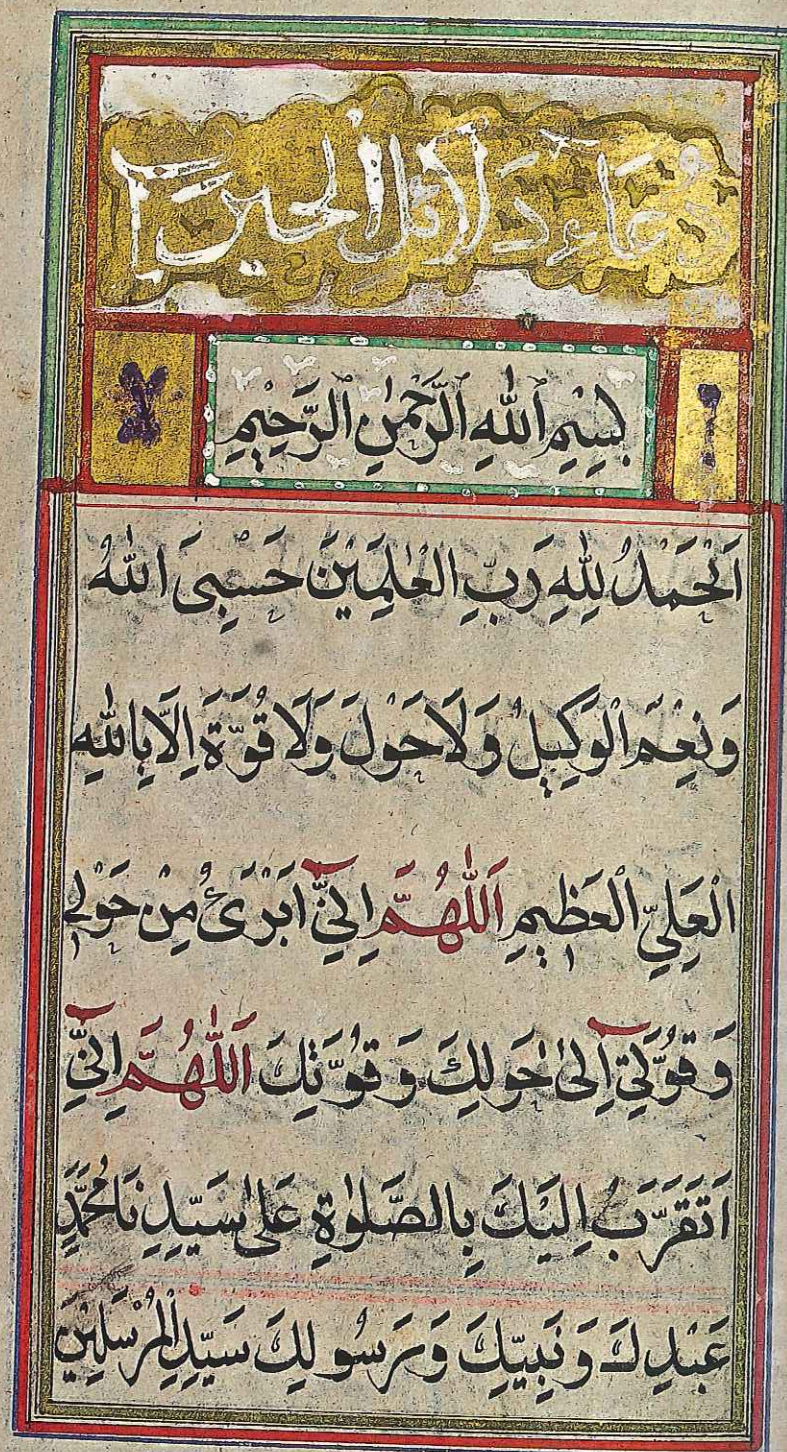 دُعَاءِ دَلَائِلُ الْخَيْرَ
بِسْمِ ٱللّٰهِ ٱلرَّحْمٰنِ ٱلرَّحِيْمِ
اَلْحَمْدُ لِلّٰهِ رَبِّ الْعٰلَمِيْنَ حَسْبِىَ اللّٰهُ
وَنِعْمَ الْوَكِيْلُ وَلَا حَوْلَ وَلَا قُوَّةَ اِلَّا بِاللّٰهِ
الْعَلِيِّ الْعَظِيْمِ اَللّٰهُمَّ اِنِّيْٓ اَبْرَئُ مِنْ حَوْلِيْ
وَقُوَّتِيْٓ اِلىٰ حَوْلِكَ وَقُوَّتِكَ اَللّٰهُمَّ اِنِّيْٓ
اَتَقَرَّبُ اِلَيْكَ بِالصَّلٰوةِ عَلىٰ سَيِّدِنَا مُحَمَّدٍ
عَبْدِكَ وَنَبِيِّكَ وَرَسُولِكَ سَيِّدِ الْمُرْسَلِيْنَ